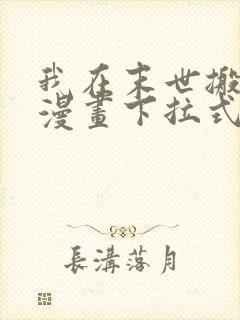 我在末世搬
漫畫下拉式
長溝落月